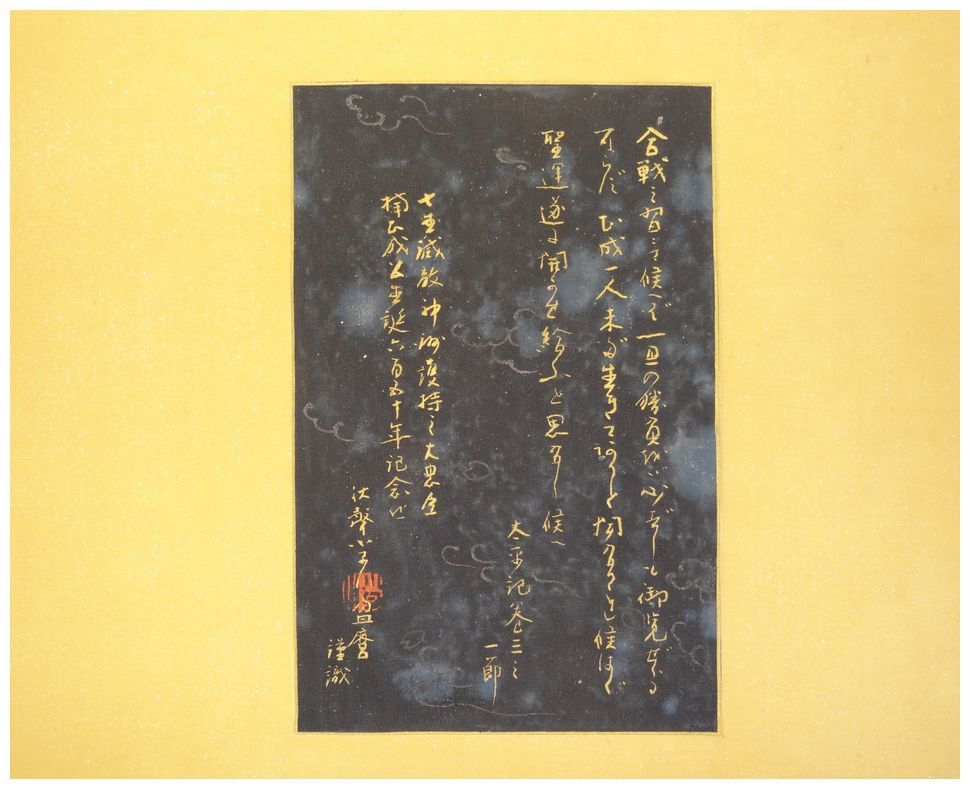 合戦之習にて候へば一旦の勝負をば必ずしも御覧ぜらる
可らず正成一人未だ生きて有りと聞召され候はば
聖運遂に開かせ給ふと思召し候へ
太平記巻三之
一節
七生滅敵神州護持之大忠臣
楠正成公生誕六百五十年記念に
謹識